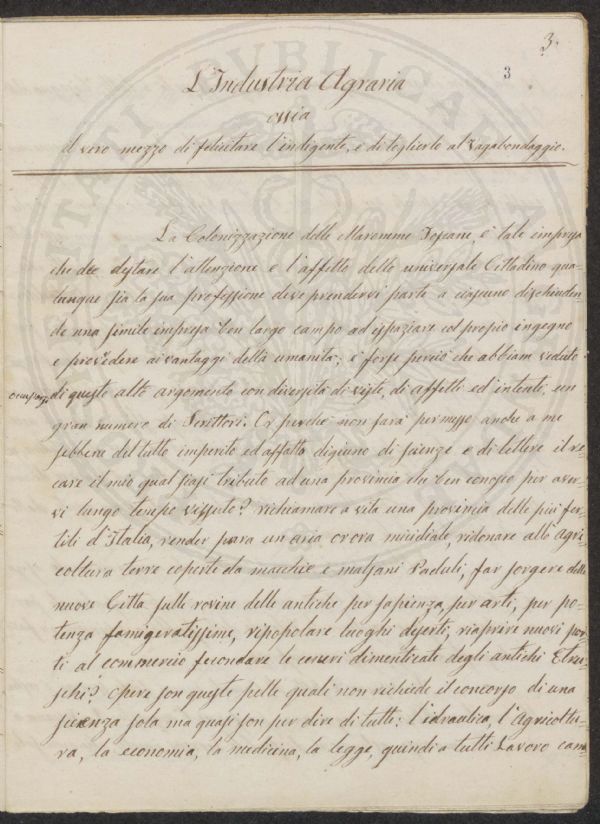 3.
3
L'Industria Agraria
ossia
Il vero mezzo di felicitare l'indigente, e di toglierlo al vagabondaggio.
La Colonizzazione delle Maremme Toscane, è tale impresa
che dee destare l'attenzione e l'affetto dello universale Cittadino qua-
lunque sia la sua professione deve prendervi parte a ciascuno dischiuden-
do una simile impresa ben largo campo ad ispaziare col propio ingegno
e provedere ai vantaggi della umanità; e forse perciò che abbiam veduto
occuparsi di questo alto argomento con diversità di viste, di affetti ed'intenti, un
gran numero di Scrittori. Or perchè non sarà permesso anche a me
sebbene del tutto imperito ed affatto digiuno di scienze e di lettere il re-
care il mio qual siasi tributo ad una provincia che ben conosco per aver-
vi lungo tempo vissuto? richiamare a vita una provincia delle più fer-
tili d'Italia, render pura un'aria ora micidiale, ridonare alla agri
coltura terre coperte da macchie e malsani Paduli, far sorgere delle
nuove Città sulle rovine delle antiche per sapienza, per arti, per po-
tenza famigeratissime, ripopolare luoghi deserti, riaprire nuovi por
ti al commercio fecondare le ceneri dimenticate degli antichi Etru-
schi? opere son queste pelle quali non richiede il concorso di una
scienza sola ma quasi son per dire di tutte: l'idraulica, l'Agricoltu-
ra, la economia, la medicina, la legge, quindi a tutti Lavoro cam